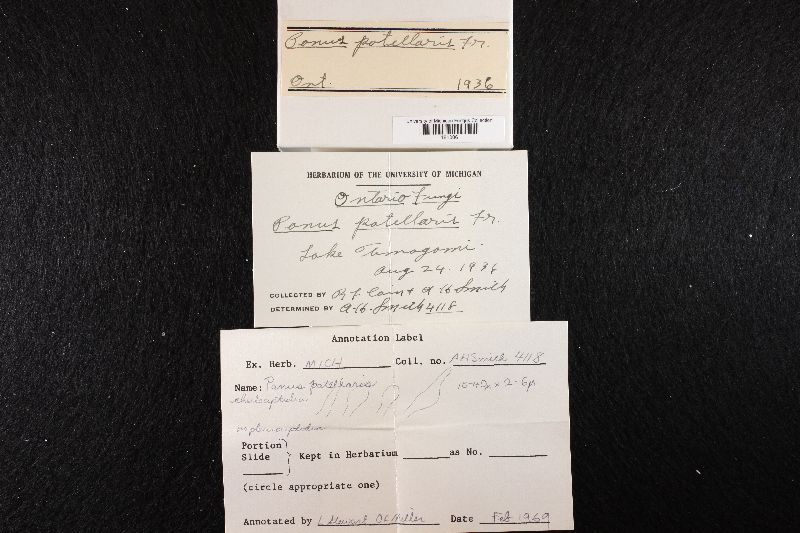 Panus patellaris Fr.
Ont. 1936
University of Michigan Fungus Collection
HERBARIUM OF THE UNIVERSITY OF MICHIGAN
Ontario Fungi
Panus patellaris Fr.
Lake Timagami.
Aug 24. 1936
COLLECTED BY R F. Cain & A H Smith
DETERMINED BY A. H. Smith 4118
Annotation Label
Ex. Herb. MICH Coll. no. AHSmith 4118
Name: Panus patellaris
cheilocystidia
no pleurocystidia
Portion
Slide
Kept in Herbarium as No.
(circle appropriate one)
Annotated by L Stewart OK Miller Date Feb 1969